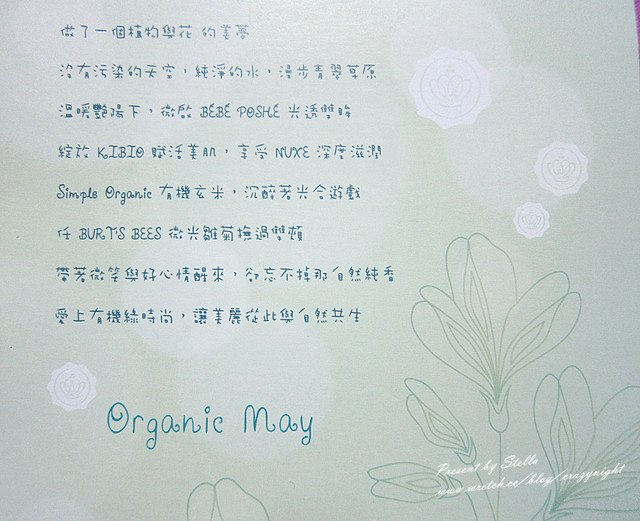 做了一個植物與花 的美夢
沒有污染的天空，純淨的水，漫步青翠草原
溫暖艷陽下，微啟 BÉBÉ POSHE 光透雙眸
綻放 KIBIO 賦活美肌，享受 NUXE 深度滋潤
Simple Organic 有機玄米，沉醉著光合遊戲
任 BURT'S BEES 微光雛菊撫過雙頰
帶著微笑與好心情醒來，卻忘不掉那自然純香
愛上有機綠時尚，讓美麗從此與自然共生
Organic May
Present by Stella
www.wretch.cc/blog/crazynight